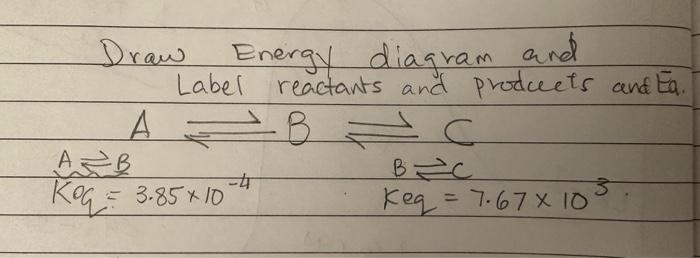 Draw Energy diagram and
Label reactants and products and Ea.
A ⇌ B ⇌ C
A ⇌ B
Keq = 3.85 × 10⁻⁴
B ⇌ C
Keq = 7.67 × 10³.